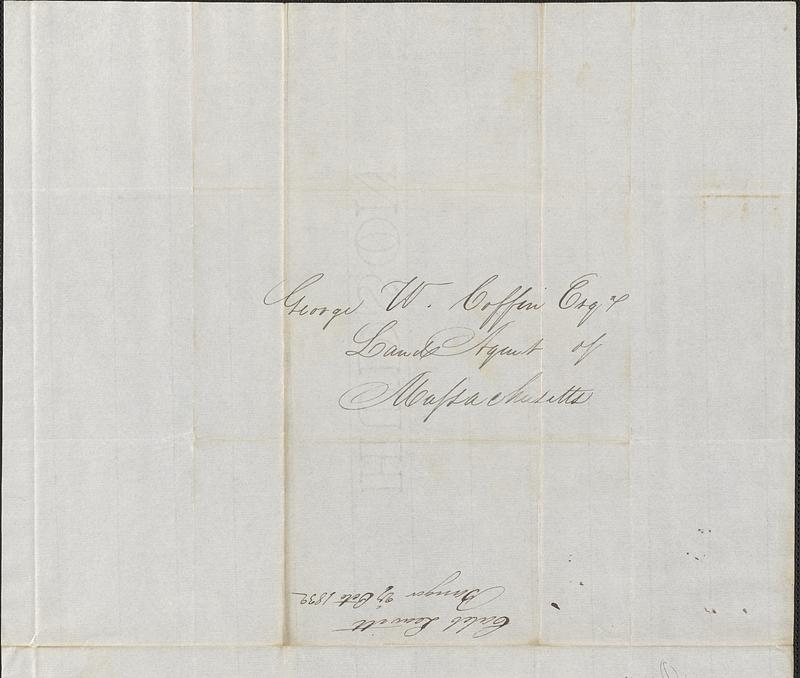 George W. Coffin Esqr
Land Agent of
Massachusetts
Caleb Leavitt
Bangor 27 Octo 1832
HUDSON